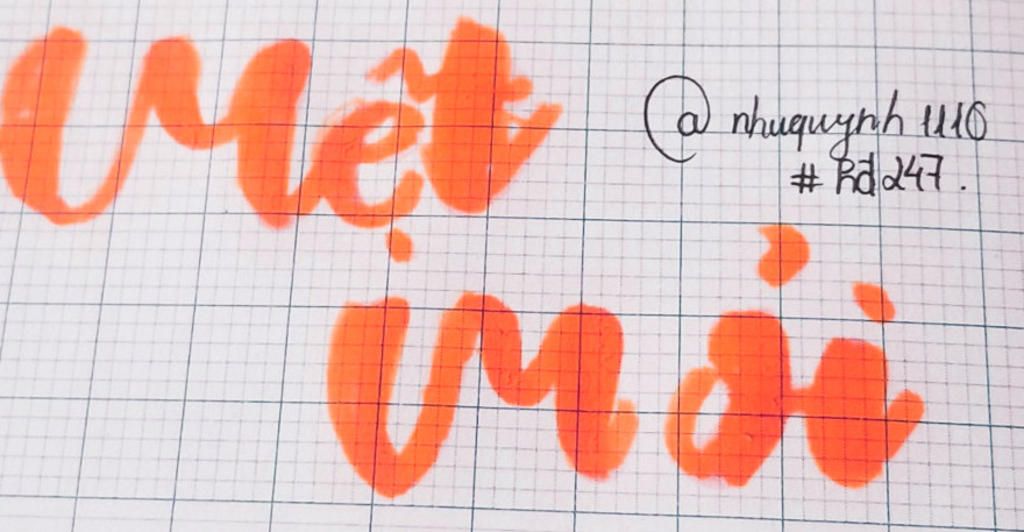 Mệt
mỏi
@nhuquynh1110
#Rd247.